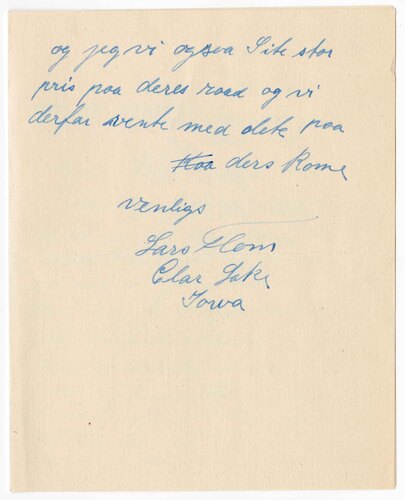 og jeg vi ogsaa Site stor
pris paa deres raad og vi
derfar vente med dete paa
Kaa ders Kome
venligs
Lars Flom
Clar Lake
Iowa